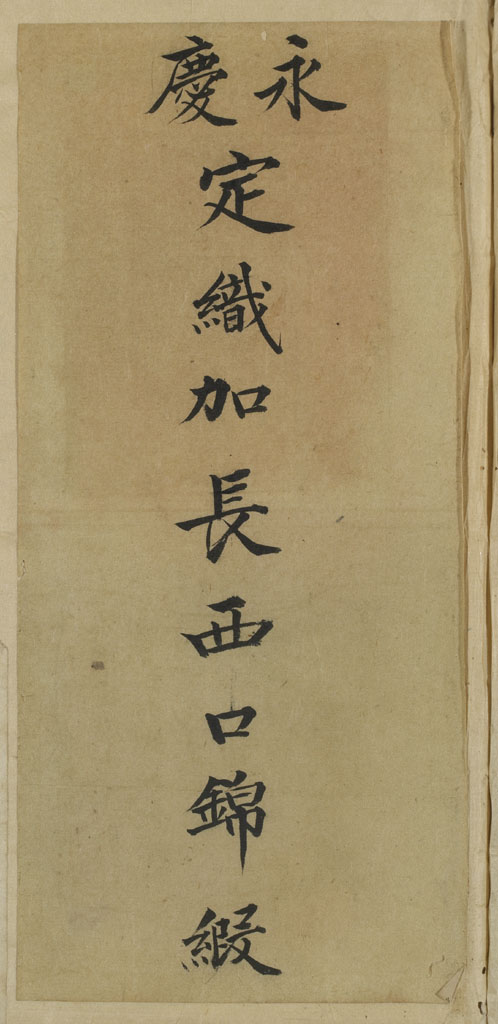 永慶
定織加長西口錦緞